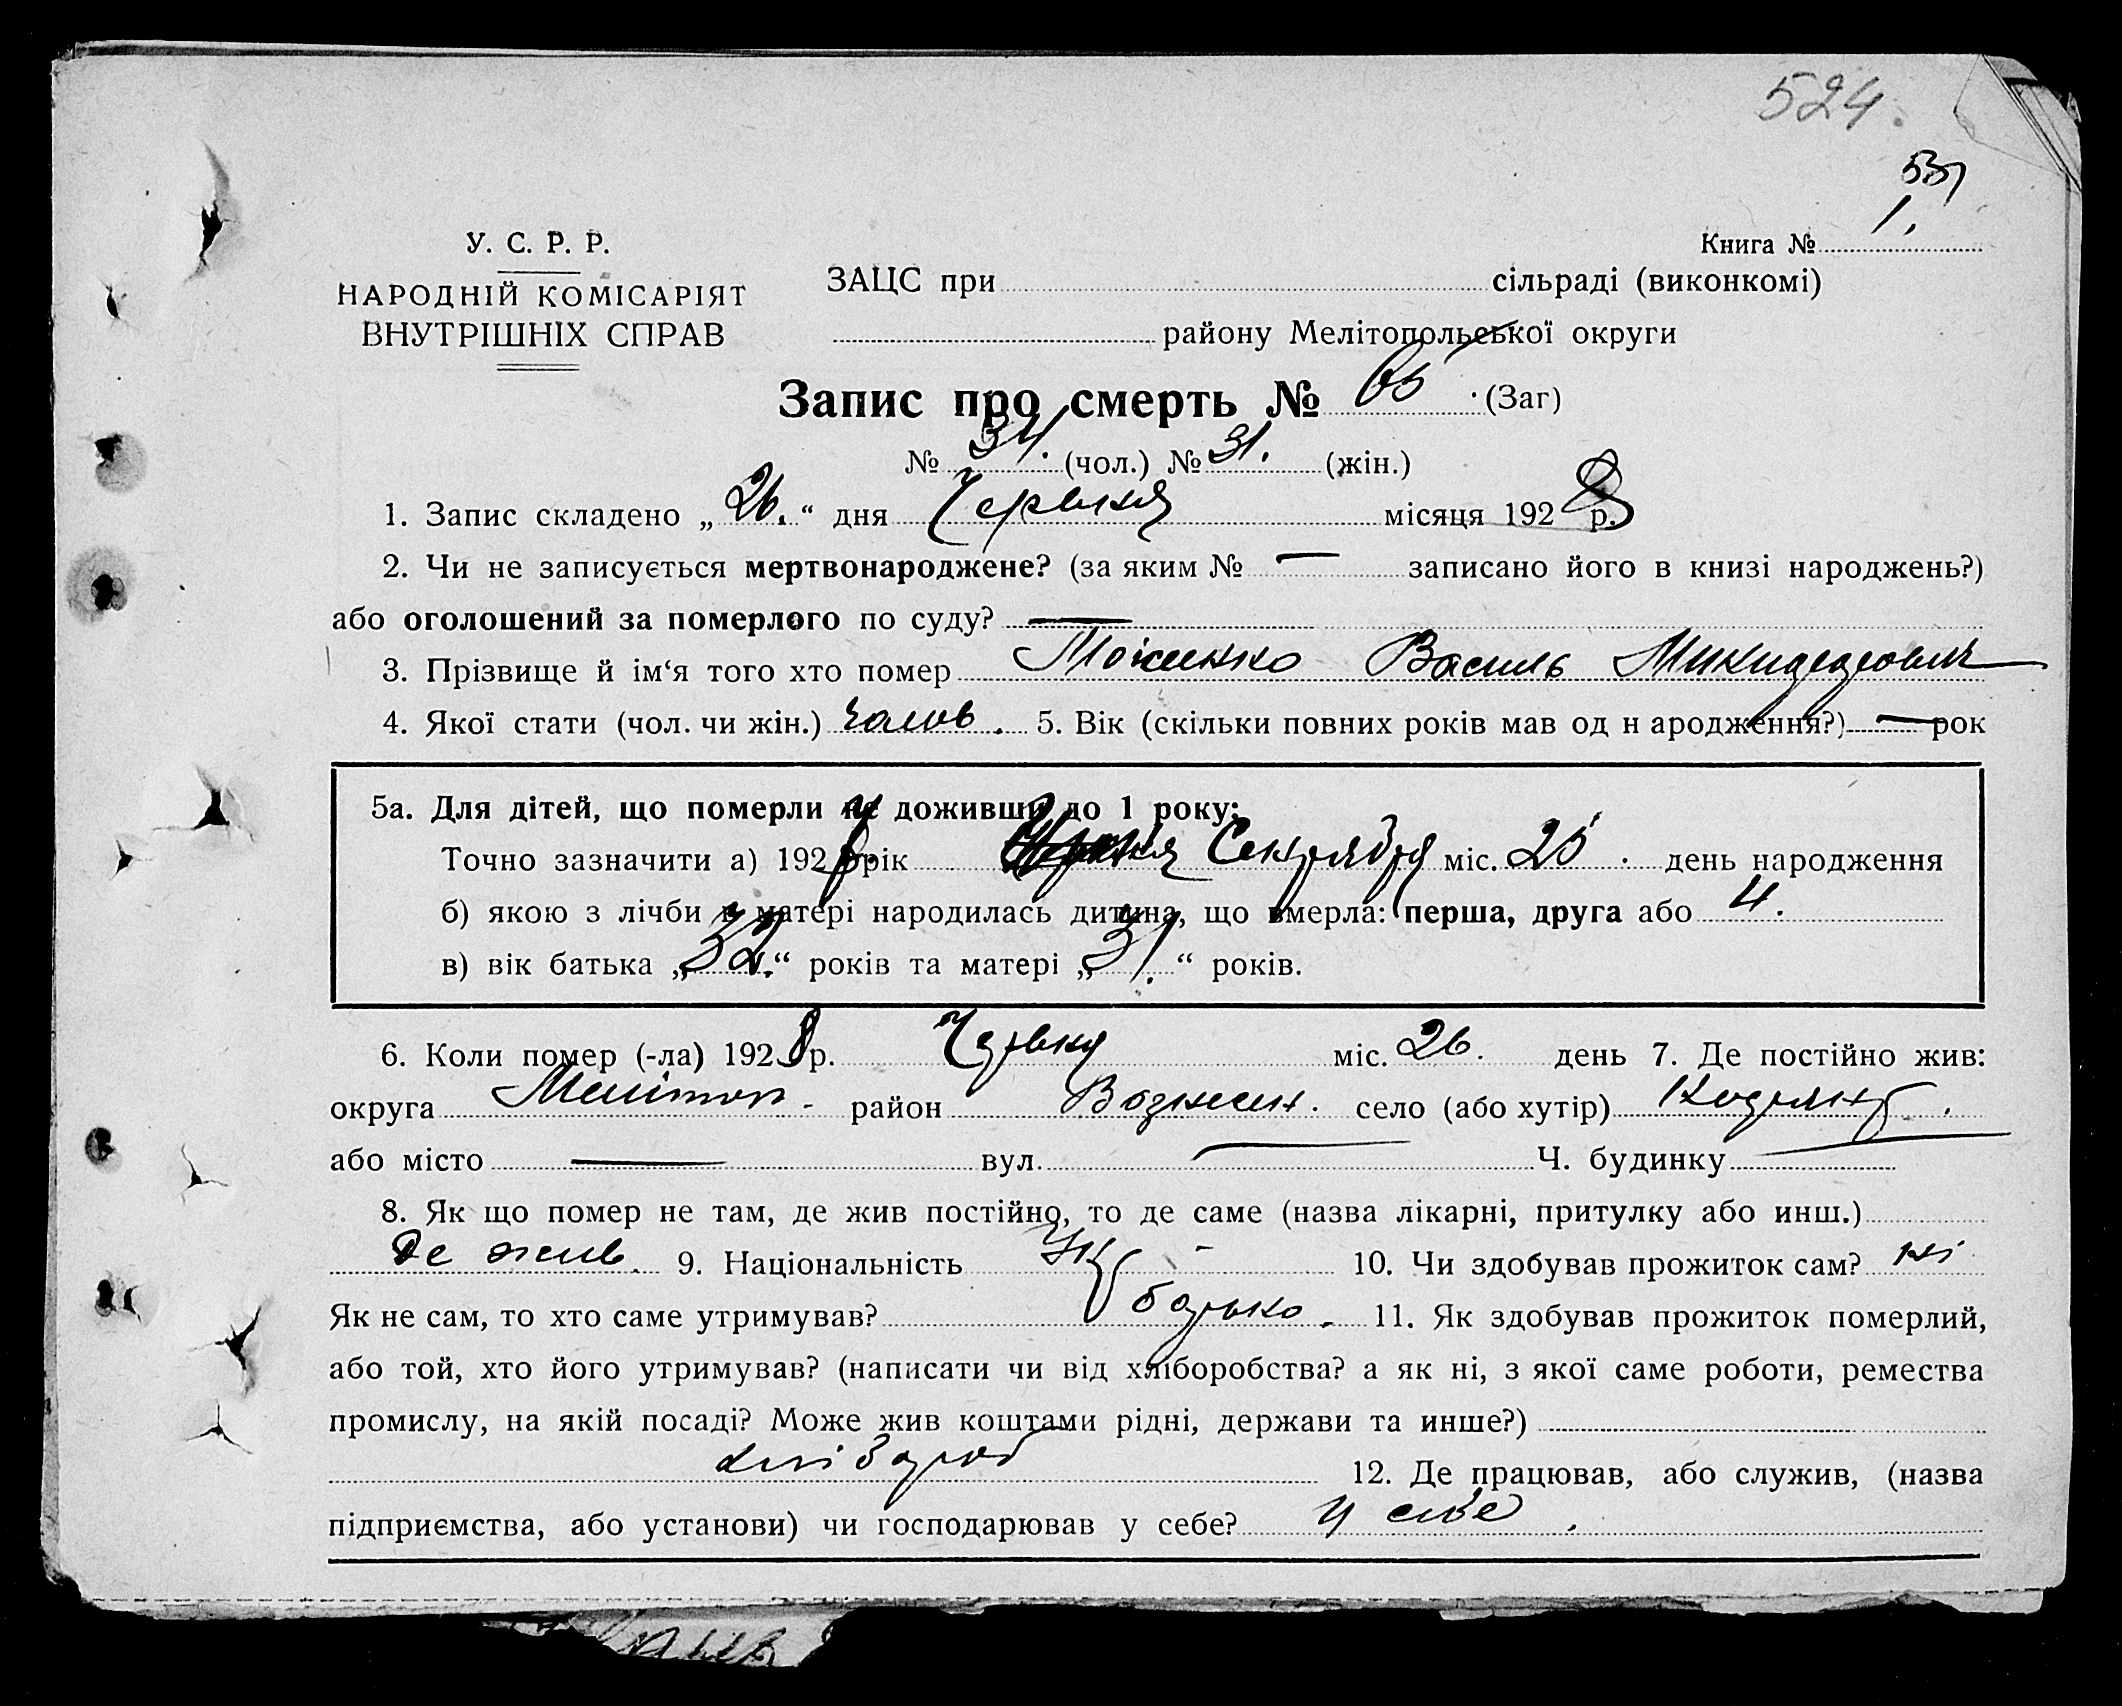 524.
537
У. С. Р. Р.
Книга № 1.
НАРОДНІЙ КОМІСАРІЯТ
ВНУТРІШНІХ СПРАВ
ЗАЦС при сільраді (виконкомі)
району Мелітопольської округи
Запис про смерть № 65 (Заг)
№ 34. (чол.) № 31. (жін.)
1. Запис складено „26.“ дня Червня місяця 1928 р.
2. Чи не записується мертвонароджене? (за яким № — записано його в книзі народжень?)
або оголошений за померлого по суду? —
3. Прізвище й ім‘я того хто помер Василь
4. Якої стати (чол. чи жін.) чолов. 5. Вік (скільки повних років мав од н ародження?) — рок
5а. Для дітей, що померли не доживши до 1 року:
Точно зазначити а) 192 рік Червня Сентября міс. 25. день народження
б) якою з лічби в матері народилась дитина, що вмерла: перша, друга або 4.
в) вік батька „32.“ років та матері „31.“ років.
6. Коли помер (-ла) 1928 р. Червня міс. 26. день 7. Де постійно жив:
округа Мелітоп- район Вознесен. село (або хутір)
або місто — вул. — Ч. будинку —
8. Як що помер не там, де жив постійно, то де саме (назва лікарні, притулку або инш.)
де жив. 9. Національність Укр - 10. Чи здобував прожиток сам? ні
Як не сам, то хто саме утримував? батько. 11. Як здобував прожиток померлий,
або той, хто його утримував? (написати чи від хліборобства? а як ні, з якої саме роботи, ремества
промислу, на якій посаді? Може жив коштами рідні, держави та инше?)
хлібороб 12. Де працював, або служив, (назва
підприємства, або установи) чи господарював у себе? у себе.